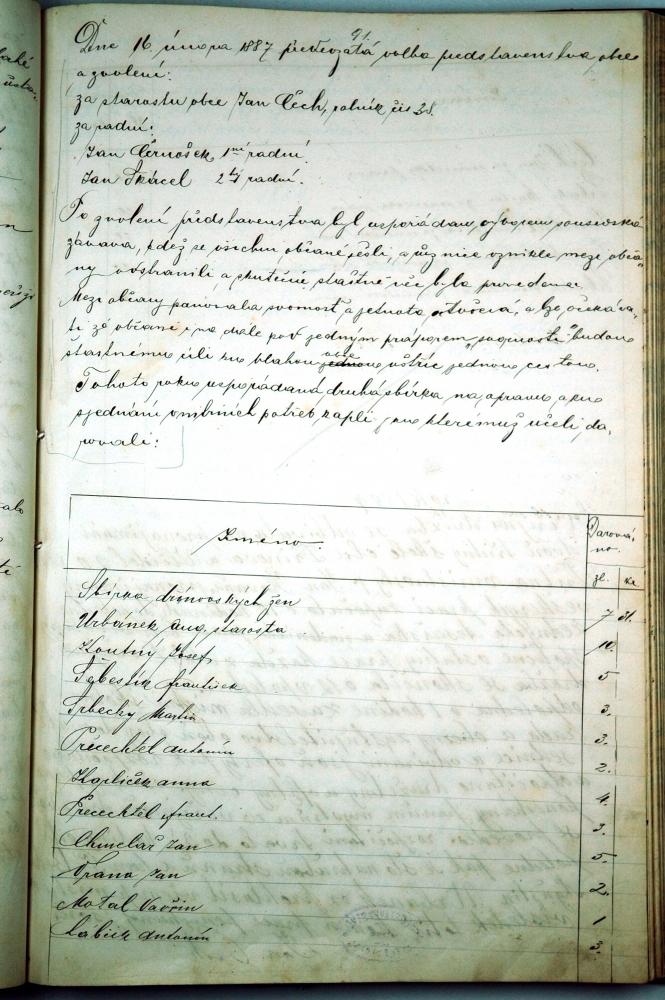 91.
Dne 16. února 1887 předevzatá volba představenstva obce
a zvoleni:
za starostu obce Jan Čech, rolník čís 28.
za radní:
Jan Černošek 1ní radní.
Jan Skácel 2hý radní.
Po zvolení představenstva byl uspořádán výborem sousedská
zábava, kdež se všichni občané sešli, a různice vzniklé mezi obča„
ny odstranili a skutečně šťastně věc byla provedena.
Mezi občany panovala svornost a jednota a lze očekáva„
ti že občané i na dále pod jedným práporem „svornosti" budou
šťastnému cíli ku blahu obce vstříc jednou cestou.
Tohoto roku uspořádaná druhá sbírka na opravu a ku
sjednání potřeb kapli, ku kterémuž účeli da„
rovali:
Jméno. Darová„
no.
zl. kr
Sbírka dřínovských žen 7 31.
Urbánek Aug. starosta 10.
Koutný Josef 5
František 3.
Srbecký Martin 3.
Přecechtěl Antonín 2.
Kapliček Anna 4.
Přecechtěl Frant. 3.
Chmelař Jan 5.
Vrana Jan 2.
Motal Vavřin 1
Labíek Antonín 3.